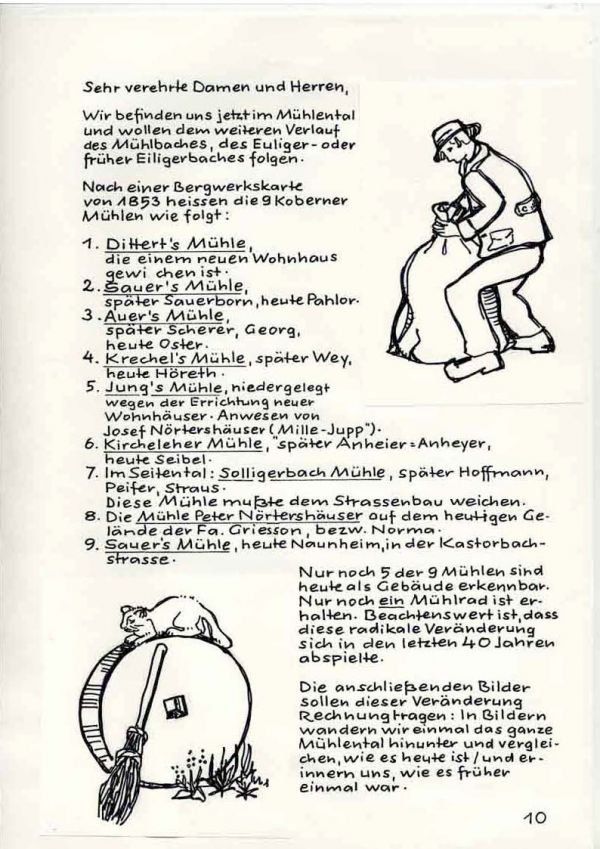 Sehr verehrte Damen und Herren,
Wir befinden uns jetzt im Mühlental
und wollen dem weiteren Verlauf
des Mühlbaches, des Euliger- oder
früher Eiligerbaches folgen.
Nach einer Bergwerkskarte
von 1853 heissen die 9 Koberner
Mühlen wie folgt:
1. Dittert's Mühle,
die einem neuen Wohnhaus
gewi chen ist.
2. Sauer's Mühle,
später Sauerborn, heute Pahlor.
3. Auer's Mühle,
später Scherer, Georg,
heute Oster.
4. Krechel's Mühle, später Wey,
heute Höreth.
5. Jung's Mühle, niedergelegt
wegen der Errichtung neuer
Wohnhäuser. Anwesen von
Josef Nörtershäuser (Mille-Jupp").
6. Kircheleher Mühle, "später Anheier = Anheyer,
heute Seibel.
7. Im Seitental: Solligerbach Mühle, später Hoffmann,
Peifer, Straus.
Diese Mühle mußte dem Strassenbau weichen.
8. Die Mühle Peter Nörtershäuser auf dem heutigen Ge-
lände der Fa. Griesson, bezw. Norma.
9. Sauer's Mühle, heute Naunheim, in der Kastorbach-
strasse.
Nur noch 5 der 9 Mühlen sind
heute als Gebäude erkennbar.
Nur noch ein Mühlrad ist er-
halten. Beachtenswert ist, dass
diese radikale Veränderung
sich in den letzten 40 Jahren
abspielte.
Die anschließenden Bilder
sollen dieser Veränderung
Rechnung tragen: In Bildern
wandern wir einmal das ganze
Mühlental hinunter und verglei-
chen, wie es heute ist / und er-
innern uns, wie es früher
einmal war.
10